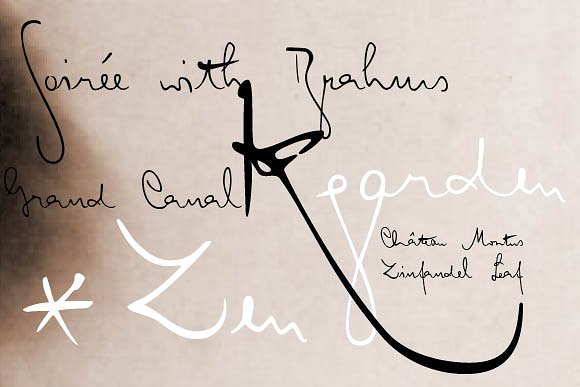 Soirée with Brahms
K
Grand Canal
garden
Château Montus
Zinfandel Leaf
* Zen